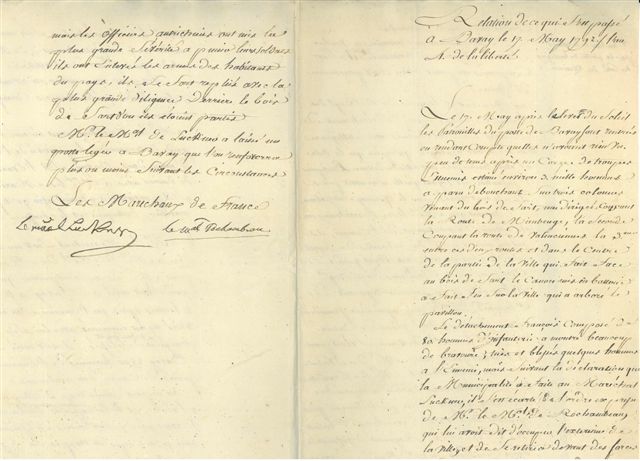 mais les officiers autrichiens ont mis la
plus grande sévérité a punir leurs soldats
ils ont enlevé les armes des habitans
du pays; ils se sont repliés avec la
plus grande diligence derriere le bois
de Sart d'ou ils étoient partis
Mr. le Mal de Luckner a laissé un
poste léger a Bavay que l'on renforcera
plus ou moins suivant les Circonstances
Les Maréchaux de France
le mal Luckner le mal Rochambeau
Relation de ce qui s'est passé
a Bavay le 17 May 1792 / l'an
4. de la liberté
Le 17. May après le levé du Soleil
les patrouilles du poste de Bavay sont rentrées
en rendant Compte qu'elles n'avoient rien vu
peu de tems après un Corps de troupes
Ennemis estimé environ 3. mille hommes
a paru debouchant sur trois colonnes
venant du bois de Sart, une dirigée coupant
la Route de Maubeuge, la Seconde
Coupant la route de Valenciennes la 3eme
entre ces deux routes et dans le Centre
de la partie de la ville qui fait face
au bois de Sart le Canon mis en batterie
a fait feu sur la ville qui a arboré le
pavillon.
Le détachement françois Composé de
80 hommes d'infanterie a montré beaucoup
de bravoure; tués et blessés quelques hommes
a l'Ennemi, mais suivant la déclaration que
la Municipalité a faite au Maréchal
Luckner, il s'est écarté de l'ordre exprès
de Mr. le Mal. de Rochambeau
qui lui avoit dit d'occuper l'exterieur de
la ville et de se retirer devant des forces